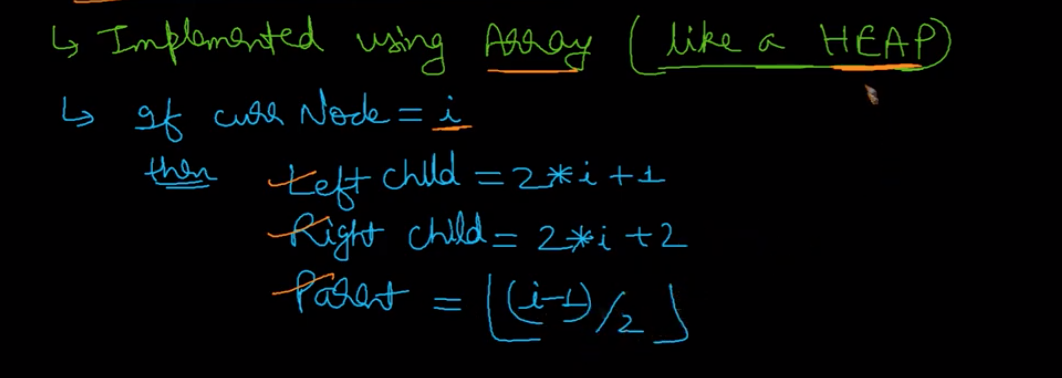 ↳ Implemented using Array (like a HEAP)
↳ If curr Node = i
then Left child = 2*i+1
Right child = 2*i+2
Parent = ⌊(i-1)/2⌋